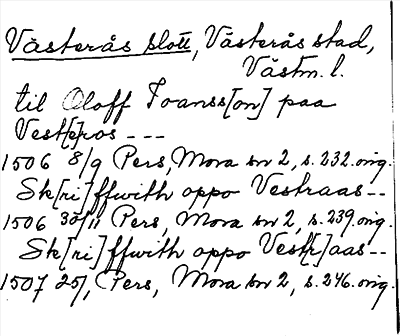 Västerås slott, Västerås stad,
Västm. l.
til Oloff Joanss[on] paa
Vest[e]ros ---
1506 8/9 Pers, Mora br 2, s. 232. orig.
Sk[ri]ffwith oppo Vestraas--
1506 30/11 Pers, Mora br 2, s. 239. orig.
Sk[ri]ffwith oppo Vest[r]aas--
1507 25/, Pers, Mora br 2, s. 246. orig.